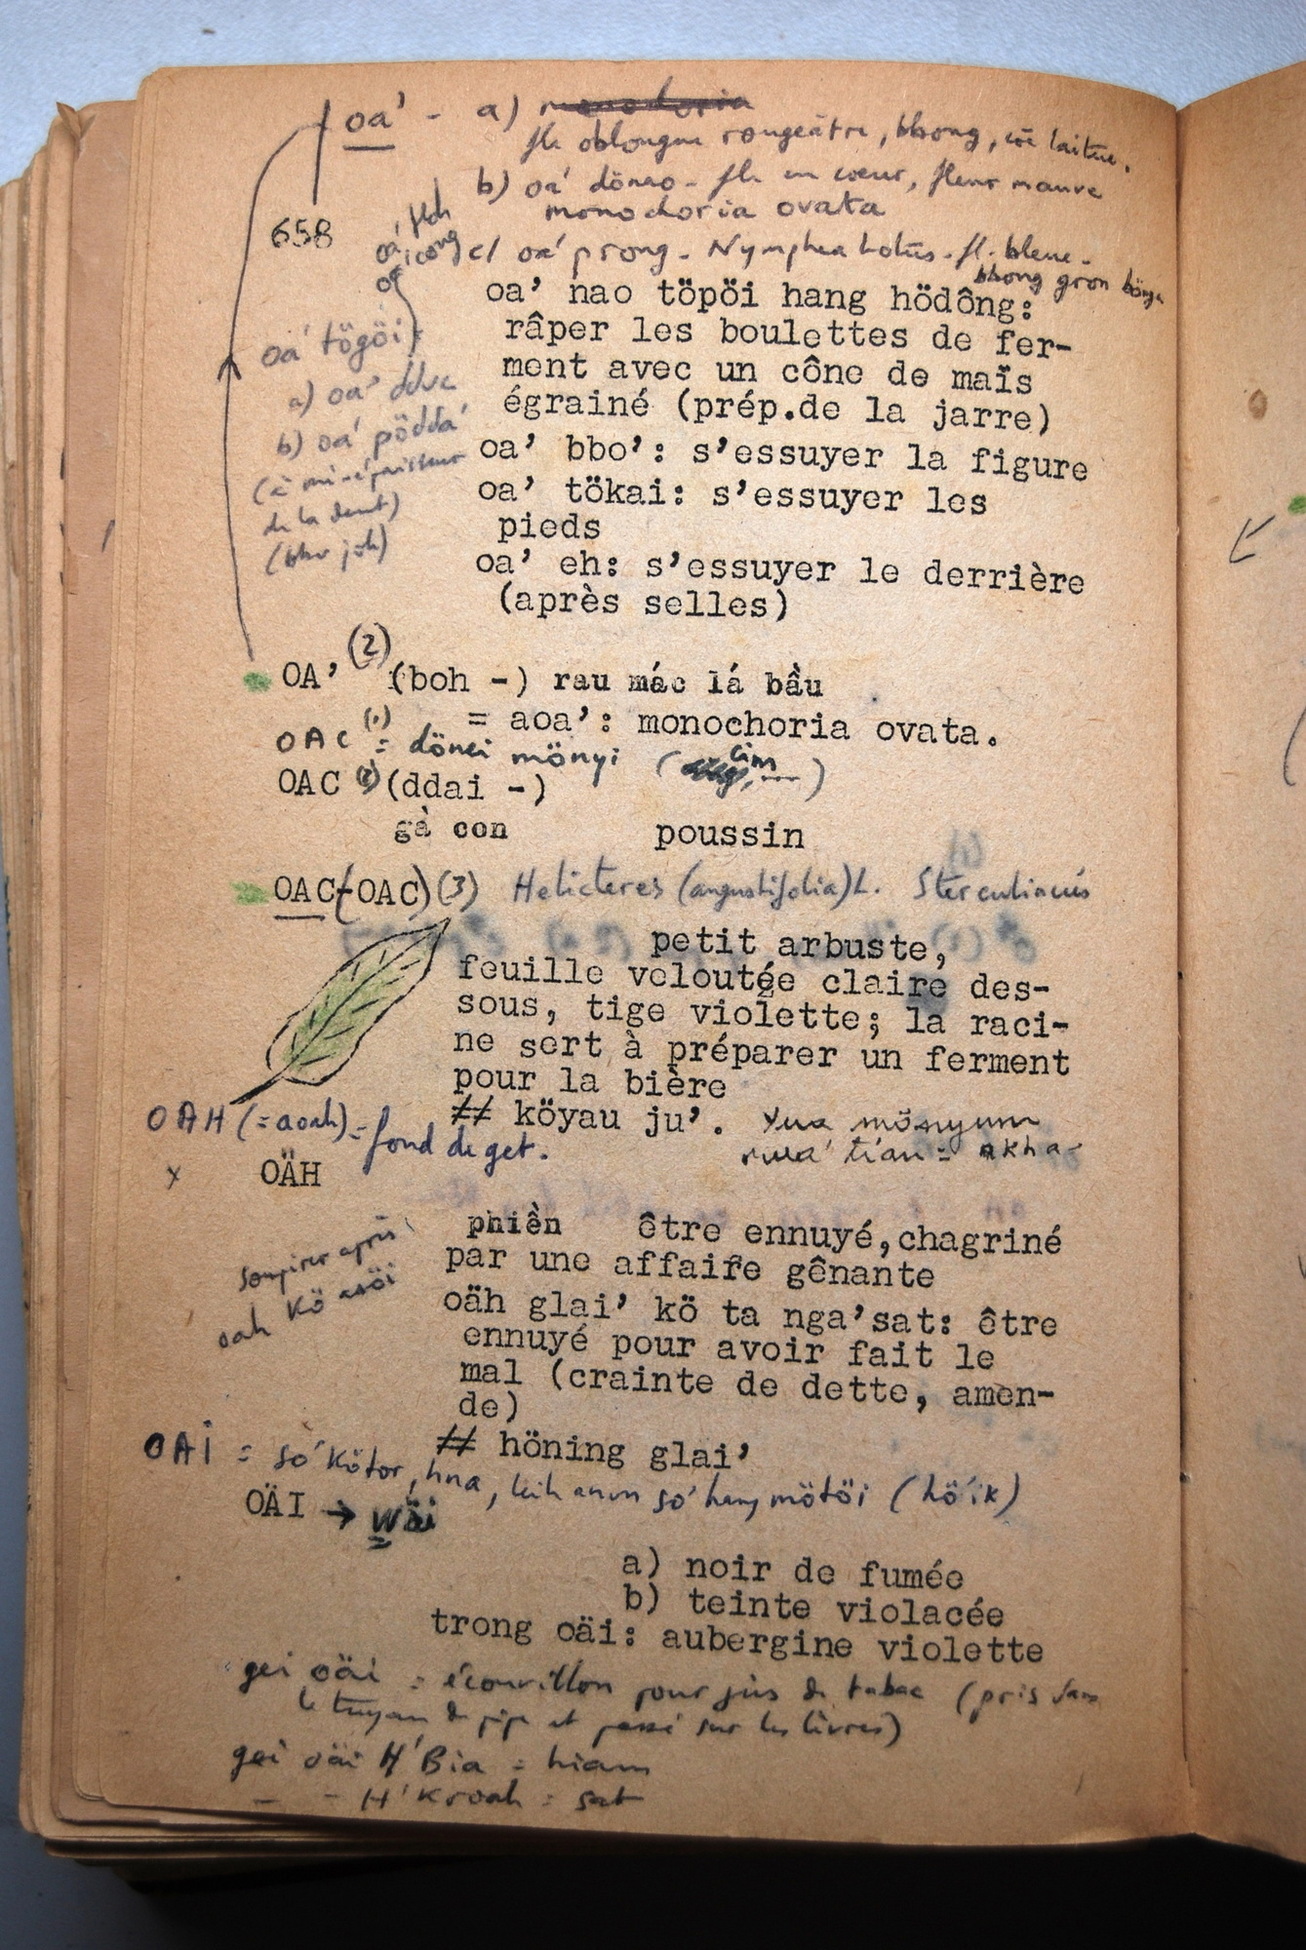 oa' - a)
fle oblongue rougeâtre, bbong, côe laitue.
b) oa' dönao - fle en cœur, fleur mauve
monochoria ovata
658
c/ oa' prong - Nymphea Lotus - fl. bleue -
bbong
oa' nao töpöi hang hödông:
râper les boulettes de fer-
ment avec un cône de maïs
égrainé (prép.de la jarre)
oa' tögöi
a) oa' dduc
b) oa' pöddá
(à mi-épaisseur
de la dent)
oa' bbo': s'essuyer la figure
oa' tökai: s'essuyer les
pieds
oa' eh: s'essuyer le derrière
(après selles)
OA' (2) (boh -) rau mác lá bầu
= aoa': monochoria ovata.
OAC (1) = mönyi
OAC (2) (ddai -)
gà con poussin
OAC(-OAC) (3) Helicteres (angustifolia) L.
petit arbuste,
feuille veloutée claire des-
sous, tige violette; la raci-
ne sert à préparer un ferment
pour la bière
## köyau ju'.
OAH (= aoah) = fond de get.
x OÄH
phiền être ennuyé,chagriné
par une affaire gênante
soupirer après
oäh glai' kö ta nga'sat: être
ennuyé pour avoir fait le
mal (crainte de dette, amen-
de)
## höning glai'
OAI = só kötor, hna, só hang mötöi (hö ik)
OÄI → Wäi
a) noir de fumée
b) teinte violacée
trong oäi: aubergine violette
gei oäi = écouvillon pour jus de tabac (pris dans
le tuyau de pipe et passé sur les lèvres)
gei oäi H'Bia = hiam
- - H'Kroah = sat